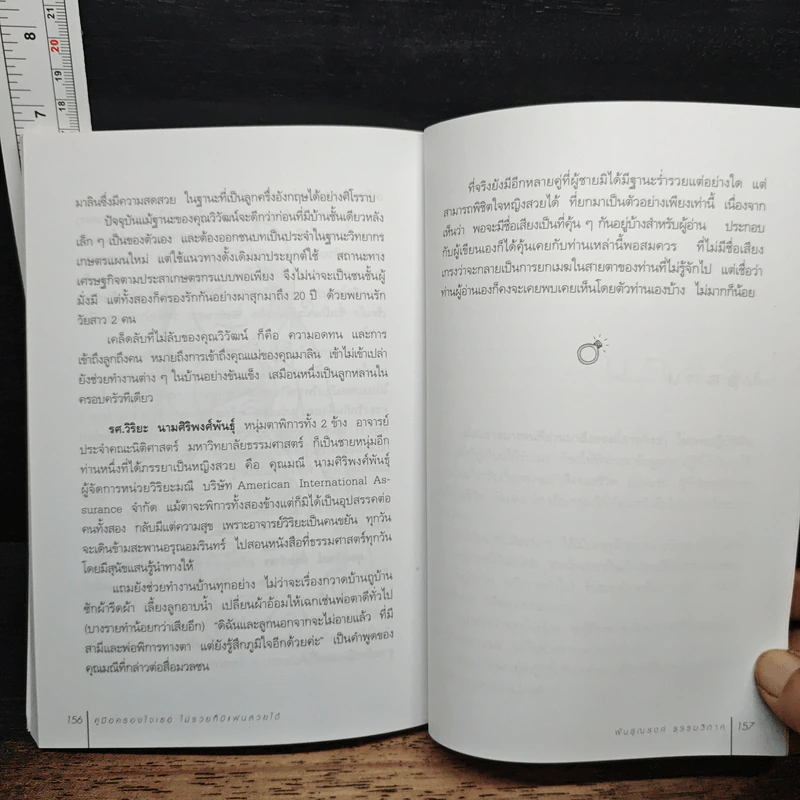 8
7
21
20
19
18
17
มาลินซึ่งมีความสดสวย ในฐานะที่เป็นลูกครึ่งอังกฤษได้อย่างศิโรราบ
ปัจจุบันแม้ฐานะของคุณวิวัฒน์จะดีกว่าก่อนที่มีบ้านชั้นเดียวหลัง
เล็ก ๆ เป็นของตัวเอง และต้องออกชนบทเป็นประจำในฐานะวิทยากร
เกษตรแผนใหม่ แต่ใช้แนวทางดั้งเดิมมาประยุกต์ใช้ สถานะทาง
เศรษฐกิจตามประสาเกษตรกรแบบพอเพียง จึงไม่น่าจะเป็นชนชั้นผู้
มั่งมี แต่ทั้งสองก็ครองรักกันอย่างผาสุกมาถึง 20 ปี ด้วยพยานรัก
วัยสาว 2 คน
เคล็ดลับที่ไม่ลับของคุณวิวัฒน์ ก็คือ ความอดทน และการ
เข้าถึงลูกถึงคน หมายถึงการเข้าถึงคุณแม่ของคุณมาลิน เข้าไม่เข้าเปล่า
ยังช่วยทำงานต่าง ๆ ในบ้านอย่างขันแข็ง เสมือนหนึ่งเป็นลูกหลานใน
ครอบครัวทีเดียว
รศ.วิริยะ นามศิริพงศ์พันธุ์ หนุ่มตาพิการทั้ง 2 ข้าง อาจารย์
ประจำคณะนิติศาสตร์ มหาวิทยาลัยธรรมศาสตร์ ก็เป็นชายหนุ่มอีก
ท่านหนึ่งที่ได้ภรรยาเป็นหญิงสวย คือ คุณมณี นามศิริพงศ์พันธุ์
ผู้จัดการหน่วยวิริยะมณี บริษัท American International As-
surance จำกัด แม้ตาจะพิการทั้งสองข้างแต่ก็มิได้เป็นอุปสรรคต่อ
คนทั้งสอง กลับมีแต่ความสุข เพราะอาจารย์วิริยะเป็นคนขยัน ทุกวัน
จะเดินข้ามสะพานอรุณอมรินทร์ ไปสอนหนังสือที่ธรรมศาสตร์ทุกวัน
โดยมีสุนัขแสนรู้นำทางให้
แถมยังช่วยทำงานบ้านทุกอย่าง ไม่ว่าจะเรื่องกวาดบ้านถูบ้าน
ซักผ้ารีดผ้า เลี้ยงลูกอาบน้ำ เปลี่ยนผ้าอ้อมให้เฉกเช่นพ่อตาดีทั่วไป
(บางรายทำน้อยกว่าเสียอีก) "ดิฉันและลูกนอกจากจะไม่อายแล้ว ที่มี
สามีและพ่อพิการทางตา แต่ยังรู้สึกภูมิใจอีกด้วยค่ะ" เป็นคำพูดของ
คุณมณีที่กล่าวต่อสื่อมวลชน
156 คู่มือครองใจเธอ ไม่รวยก็มีแฟนสวยได้
ที่จริงยังมีอีกหลายคู่ที่ผู้ชายมิได้มีฐานะร่ำรวยแต่อย่างใด แต่
สามารถพิชิตใจหญิงสวยได้ ที่ยกมาเป็นตัวอย่างเพียงเท่านี้ เนื่องจาก
เห็นว่า พอจะมีชื่อเสียงเป็นที่คุ้น ๆ กันอยู่บ้างสำหรับผู้อ่าน ประกอบ
กับผู้เขียนเองก็ได้คุ้นเคยกับท่านเหล่านี้พอสมควร ที่ไม่มีชื่อเสียง
เกรงว่าจะกลายเป็นการยกเมฆในสายตาของท่านที่ไม่รู้จักไป แต่เชื่อว่า
ท่านผู้อ่านเองก็คงจะเคยพบเคยเห็นโดยตัวท่านเองบ้าง ไม่มากก็น้อย
พันธุ์ณรงค์ ธรรมวิภาค 157